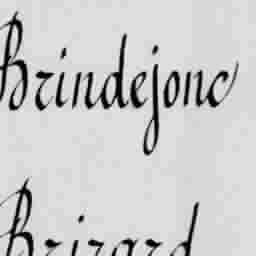 Brindejonc
Brizard